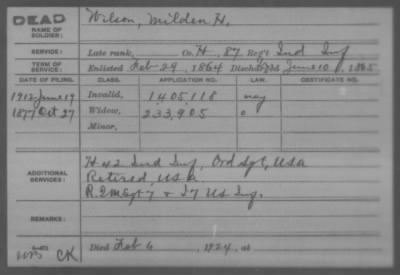 DEAD
NAME OF SOLDIER:
Wilson, Milden H.
SERVICE:
Late rank, Co. H, 87 Reg't Ind Inf
TERM OF SERVICE:
Enlisted Feb 29, 1864 Discharged June 10, 1865
DATE OF FILING. CLASS. APPLICATION NO. LAW. CERTIFICATE NO.
1912 June 19 Invalid, 1405118 may
1877 Oct 27 Widow, 233,905 o
Minor,
ADDITIONAL SERVICES:
H 42 Ind Inf, Ord Sgt, USA
Retired, USA
R.2M Sgt 7 & I 7 US Inf.
REMARKS:
Died Feb 6, 1924, at
CK